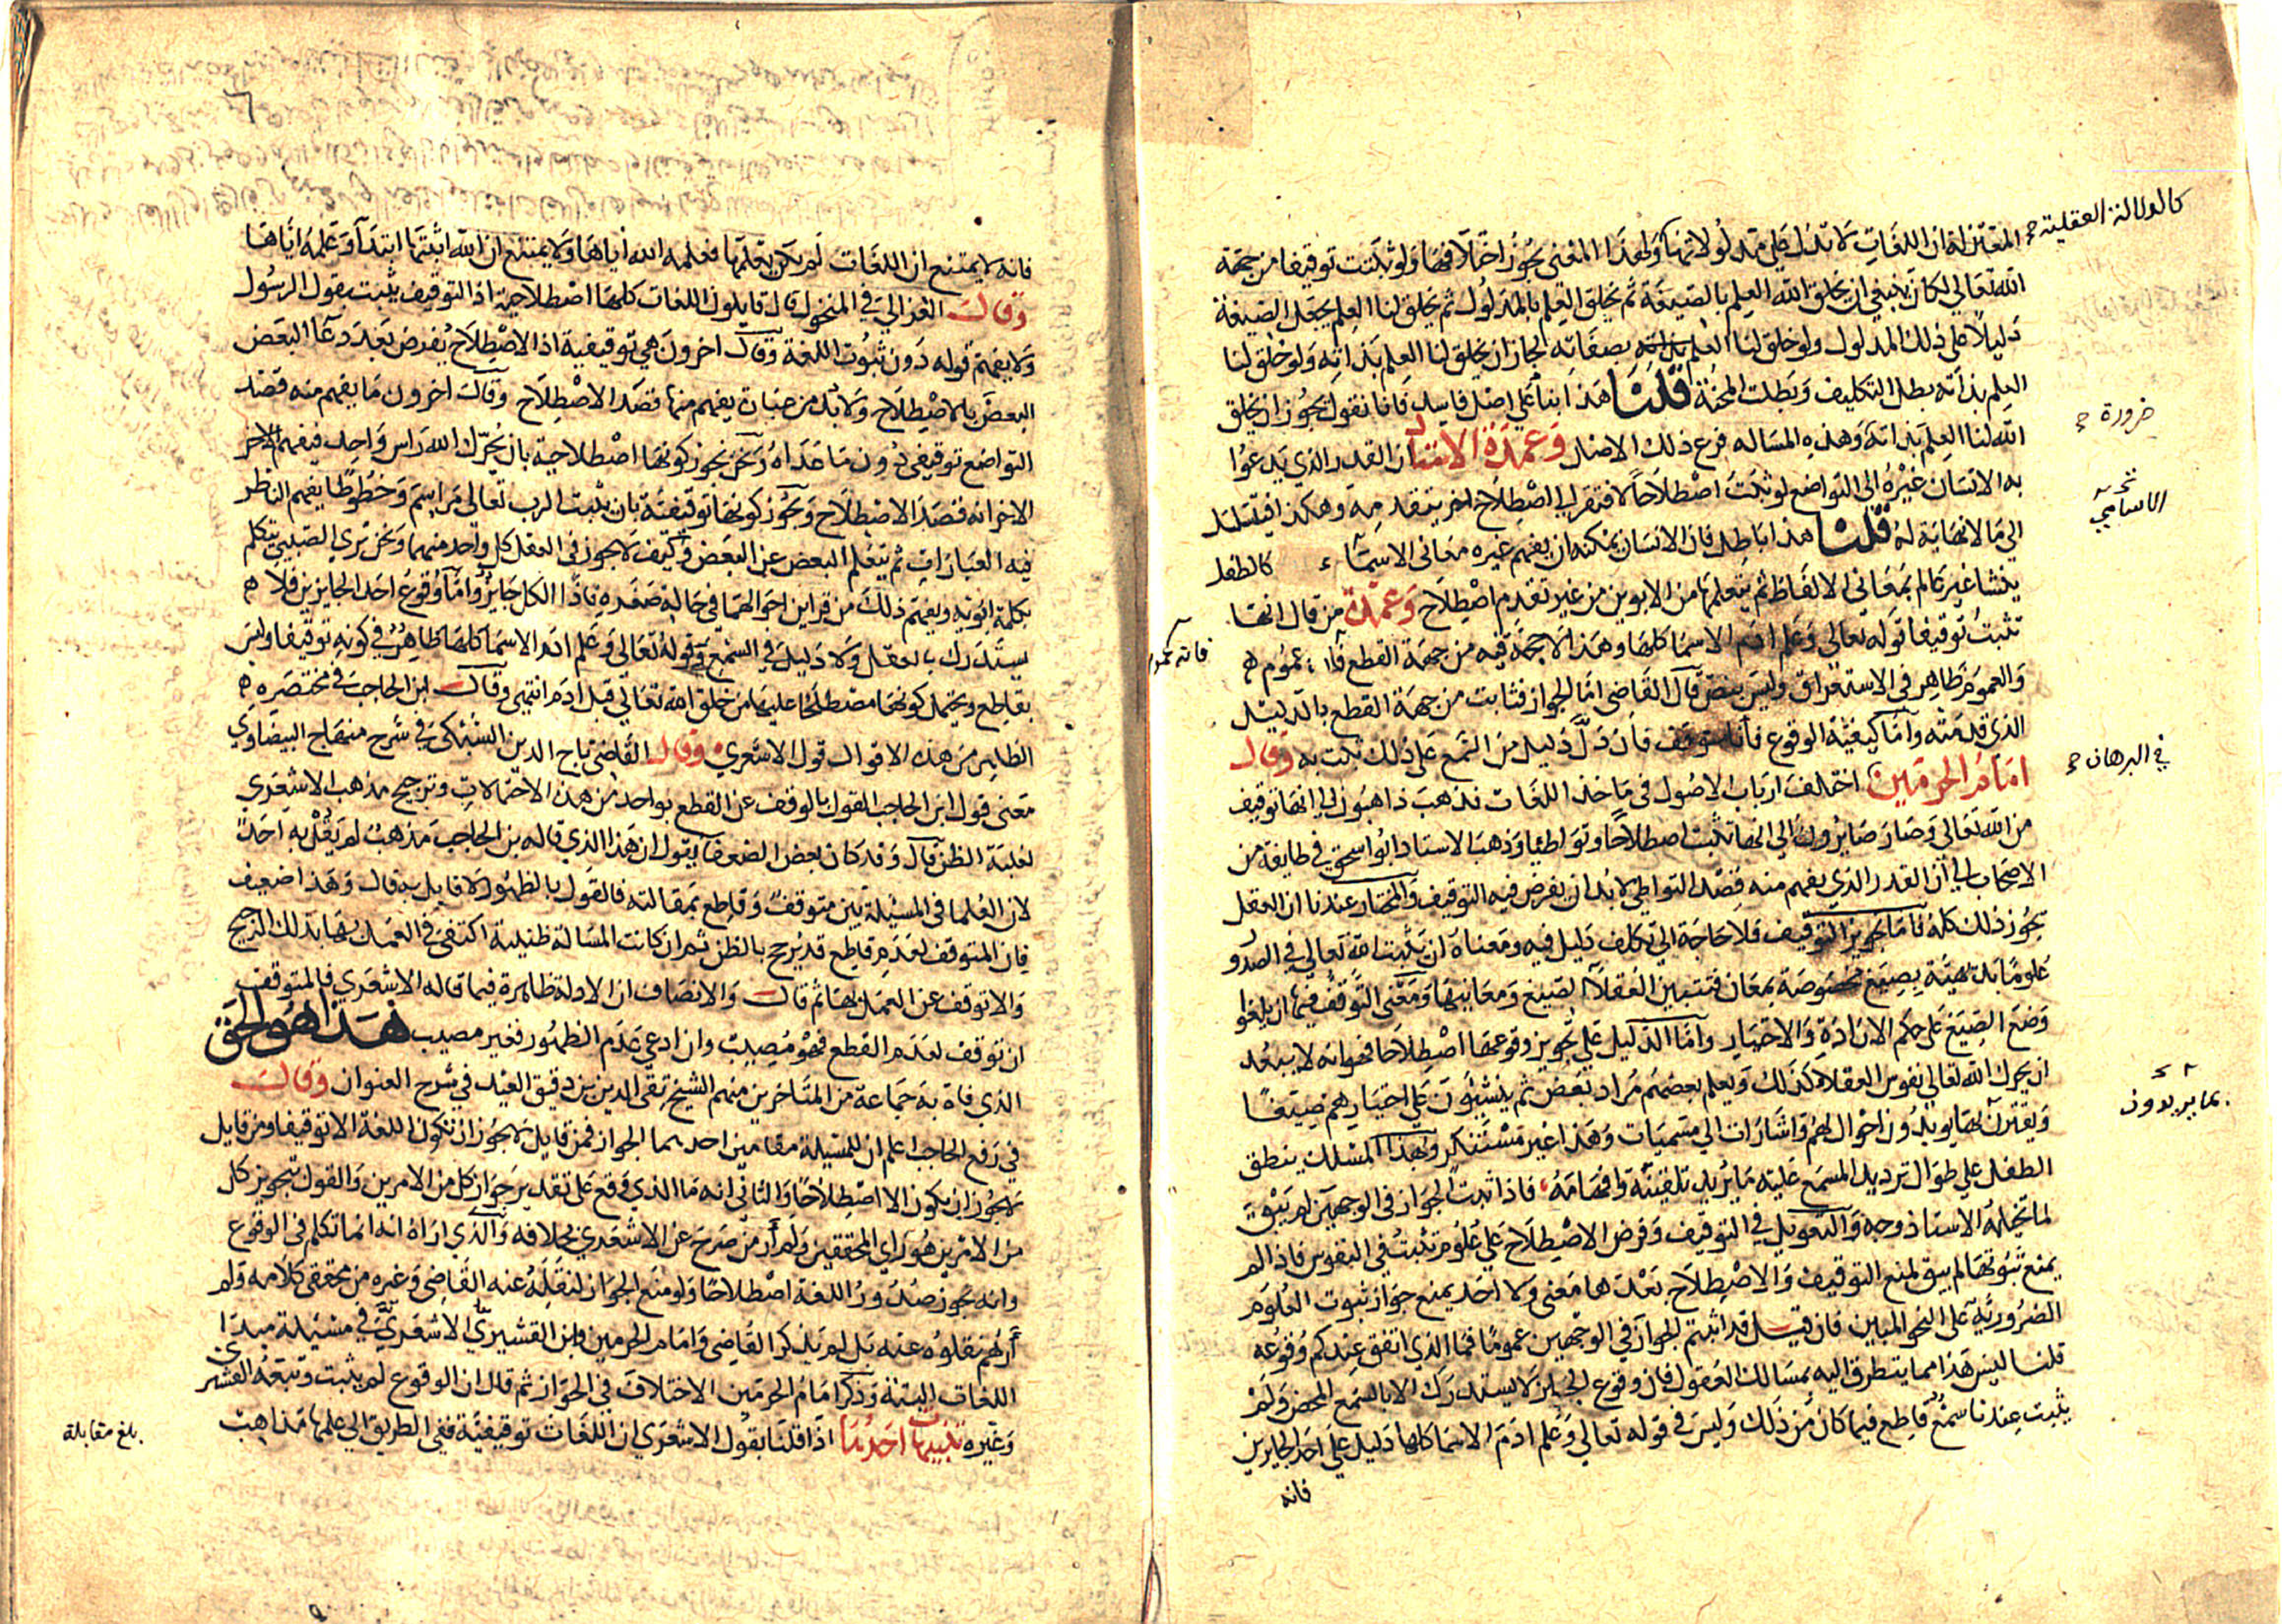 المعتزلة ان اللغات لا تدل على مدلولاتها كالدلالة العقلية ولهذا المعنى يجوز اختلافها ولو ثبتت توقيفا من جهة
الله تعالى لكان ينبغي ان يخلق الله العلم بالصيغة ثم يخلق العلم بالمدلول ثم يخلق لنا العلم بجعل الصيغة
دليلا على ذلك المدلول ولو خلق لنا العلم بصفاته لجاز ان يخلق لنا العلم بذاته ولو خلق لنا
العلم بذاته بطل التكليف وبطلت المحنة قلنا هذا بنا على اصل فاسد فانا نقول يجوز ان يخلق
الله لنا العلم بذاته ضرورة وهذه المساله فرع ذلك الاصل وعمدة الاستاذ ان القدر الذي يدعوا
به الانسان غيره الى التواضع لو ثبت اصطلاحا لافتقر الى اصطلاح اخر يتقدمه وهكذا فيتسلسل
الى ما لا نهاية له قلنا هذا باطل فان الانسان يمكنه ان يفهم غيره معاني الاسماء كالطفل
ينشا غير عالم بمعاني الالفاظ ثم يتعلمها من الابوين من غير تقدم اصطلاح وعمدة من قال انها
تثبت توقيفا قوله تعالى وعلم ادم الاسما كلها وهذا لا حجة فيه من جهة القطع فانه عموم
والعموم ظاهر في الاستغراق وليس بنص قال القاضي اما الجواز فثابت من جهة القطع بالدليل
الذي قدمته واما كيفية الوقوع فانا متوقف فان دل دليل من السمع على ذلك ثبت به وقال
امام الحرمين في البرهان اختلف ارباب الاصول في ماخذ اللغات فذهب ذاهبون الى انها توقيف
من الله تعالى وصار صايرون الى انها تثبت اصطلاحا وتواطئا وذهب الاستاد ابو اسحق في طايفة من
الاصحاب الى ان القدر الذي يفهم منه قصد التواطي لا بد ان يفرض فيه التوقيف والمختار عندنا ان العقل
يجوز ذلك كله فاما تجويز التوقيف فلا حاجة الى تكلف دليل فيه ومعناه ان يثبت الله تعالى في الصدو
علوما بديهية بصيغ مخصوصة بمعان فتتبين العقلا الصيغ ومعانيها ومعنى التوقف فيها ان يلغوا
وضع الصيغ على حكم الارادة والاختيار واما الدليل على تجويز وقوعها اصطلاحا فهو انه لا يبعد
ان يحرك الله تعالى نفوس العقلا لذلك ويعلم بعضهم مراد بعض ثم ينشئون على اختيارهم صيغا
ويقترن بها بما يريدون احوال لهم واشارات الى مسميات وهذا غير مستنكر وبهذا المسلك ينطق
الطفل على طوال ترديد المسمع عليه ما يريد تلقينه وافهامه فاذا ثبت الجواز في الوجهين لم يبق
لما تخيله الاستاذ وجه والتعويل في التوقيف وفرض الاصطلاح على علوم تثبت في النفوس فاذا لم
يمنع ثبوتها لم يبق لمنع التوقيف والاصطلاح بعدها معنى ولا احد يمنع جواز ثبوت العلوم
الضرورية على النحو المبين فان قيل قد اثبتم الجواز في الوجهين عموما فما الذي اتفق عندكم وقوعه
قلنا ليس هذا مما يتطرق اليه بمسالك العقول فان وقوع الجايز لا يستدرك الا بالسمع المحض ولم
يثبت عندنا سمع قاطع فيما كان من ذلك وليس في قوله تعالى وعلم ادم الاسما كلها دليل على احد الجايزين
فانه
كالدلالة العقلية
ضرورة
في البرهان
بما يريدون
فانه لا يمتنع ان اللغات لم يكن يعلمها فعلمه الله اياها ولا يمتنع ان الله اثبتها ابتدآ وعلمه اياها
وقال الغزالي في المنخول قال قايلون اللغات كلها اصطلاحية اذ التوقيف يثبت بقول الرسول
ولا يفهم قوله دون ثبوت اللغة وقال اخرون هي توقيفية اذ الاصطلاح يفرض بعد دعآ البعض
البعض بالاصطلاح ولا بد من عبارة يفهم منها قصد الاصطلاح وقال اخرون ما يفهم منه قصد
التواضع توقيفي دون ما عداه ونحن نجوز كونها اصطلاحية بان يحرك الله راس واحد فيفهم الاخر
الاخر انه قصد الاصطلاح ويجوز كونها توقيفية بان يثبت الرب تعالى مراسم وخطوطا يفهم الناظر
فيه العبارات ثم يتعلم البعض عن البعض وكيف لا يجوز في العقل كل واحد منهما ونحن نرى الصبي يتكلم
بكلمة ابويه ويفهم ذلك من قراين احوالهما في حالة صغره فاذا الكل جايز واما وقوع احد الجايزين فلا
يستدرك بالعقل ولا دليل في السمع وقوله تعالى وعلم ادم الاسما كلها ظاهر في كونه توقيفا وليس
بقاطع ويحتمل كونها مصطلحا عليها من خلق الله تعالى قبل ادم انتهى وقال ابن الحاجب في مختصره
الظاهر من هذه الاقوال قول الاشعري وقال القاضي تاج الدين السبكي في شرح منهاج البيضاوي
معنى قول ابن الحاجب القول بالوقف عن القطع بواحد من هذه الاحتمالات وترجيح مذهب الاشعري
لغلبة الظن قال وقد كان بعض الضعفآ يقول ان هذا الذي قاله بن الحاجب مذهب لم يقل به احد
لان العلما في المسئلة بين متوقف وقاطع بمقالته فالقول بالظهور لا قايل به قال وهذا ضعيف
فان المتوقف لعدم قاطع قد يرجح بالظن ثم ان كانت المسالة ظنية اكتفى في العمل بها بذلك الترجيح
والا توقف عن العمل بها ثم قال والانصاف ان الادلة ظاهرة فيما قاله الاشعري فالمتوقف
ان توقف لعدم القطع فهو مصيب وان ادعى عدم الظهور فغير مصيب هذا هو الحق
الذي فاه به جماعة من المتاخرين منهم الشيخ تقي الدين بن دقيق العيد في شرح العنوان وقال
في رفع الحاجب اعلم ان للمسئلة مقامين احدهما الجواز فمن قايل لا يجوز ان تكون اللغة الا توقيفا ومن قايل
لا يجوز ان يكون الا اصطلاحا والثاني انه ما الذي وقع على تقدير جواز كل من الامرين والقول بتجويز كل
من الامرين هو راي المحققين ولم ار من صرح عن الاشعري بخلافه والذي اراه انه انما تكلم في الوقوع
وانه يجوز صدور اللغة اصطلاحا ولو منع الجواز لنقله عنه القاضي وغيره من محققي كلامه ولم
ارهم نقلوه عنه بل لم يذكر القاضي وامام الحرمين وابن القشيري الاشعري في مسئلة مبدا
اللغات البتة وذكر امام الحرمين الاختلاف في الجواز ثم قال ان الوقوع لم يثبت وتبعه القشيري
وغيره تنبيهات احدها اذا قلنا بقول الاشعري ان اللغات توقيفية ففي الطريق الى علمها مذاهب
بلغ مقابلة